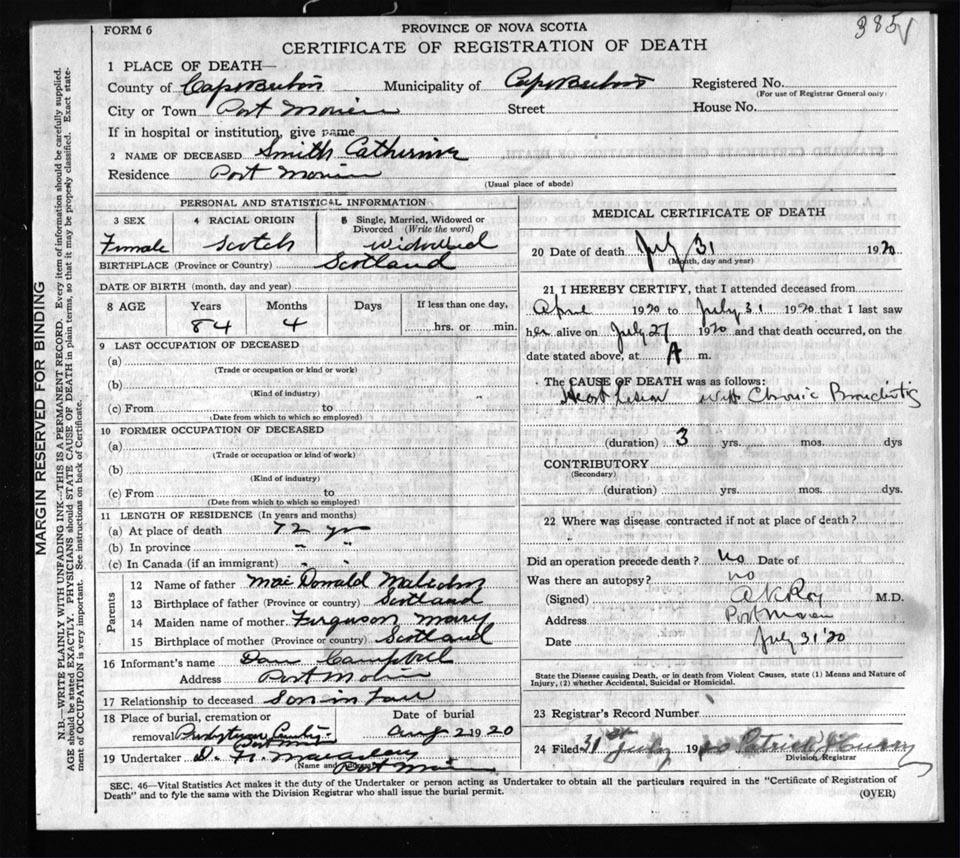 385
FORM 6
PROVINCE OF NOVA SCOTIA
CERTIFICATE OF REGISTRATION OF DEATH
1 PLACE OF DEATH—
County of Cape Breton Municipality of Cape Breton Registered No.
(For use of Registrar General only)
City or Town Port Morien Street House No.
If in hospital or institution, give name
2 NAME OF DECEASED Smith Catherine
Residence Port Morien
(Usual place of abode)
PERSONAL AND STATISTICAL INFORMATION
3 SEX 4 RACIAL ORIGIN 5 Single, Married, Widowed or Divorced (Write the word)
Female Scotch Widowed
BIRTHPLACE (Province or Country) Scotland
DATE OF BIRTH (month, day and year)
8 AGE Years Months Days If less than one day,
84 4 hrs. or min.
9 LAST OCCUPATION OF DECEASED
(a)
(Trade or occupation or kind or work)
(b)
(Kind of industry)
(c) From to
(Date from which to which so employed)
10 FORMER OCCUPATION OF DECEASED
(a)
(Trade or occupation or kind of work)
(b)
(Kind of industry)
(c) From to
(Date from which to which so employed)
11 LENGTH OF RESIDENCE (In years and months)
(a) At place of death 72 yr
(b) In province " "
(c) In Canada (if an immigrant) " "
Parents
12 Name of father MacDonald Malcolm
13 Birthplace of father (Province or country) Scotland
14 Maiden name of mother Ferguson Mary
15 Birthplace of mother (Province or country) Scotland
16 Informant's name Dan Campbell
Address Port Morien
17 Relationship to deceased Son in Law
18 Place of burial, cremation or removal Date of burial
Presbyterian Cemetery Port Morien Aug 2 1920
19 Undertaker D.
(Name and address) Port Morien
MEDICAL CERTIFICATE OF DEATH
20 Date of death July 31 1920
(Month, day and year)
21 I HEREBY CERTIFY, that I attended deceased from
April 1920 to July 31 1920 that I last saw
her alive on July 27 1920 and that death occurred, on the
date stated above, at A m.
The CAUSE OF DEATH was as follows:
Heart Lesion with Chronic Bronchitis
(duration) 3 yrs. mos. dys
CONTRIBUTORY
(Secondary)
(duration) yrs. mos. dys.
22 Where was disease contracted if not at place of death?
Did an operation precede death? no Date of
Was there an autopsy? no
(Signed) A K Roy M.D.
Address Port Morien
Date July 31 '20
State the Disease causing Death, or in death from Violent Causes, state (1) Means and Nature of
Injury, (2) whether Accidental, Suicidal or Homicidal.
23 Registrar's Record Number
24 Filed 31st July 1920 Patrick J
Division Registrar
SEC. 46—Vital Statistics Act makes it the duty of the Undertaker or person acting as Undertaker to obtain all the particulars required in the "Certificate of Registration of
Death" and to fyle the same with the Division Registrar who shall issue the burial permit.
(OVER)
MARGIN RESERVED FOR BINDING
N.B.—WRITE PLAINLY WITH UNFADING INK—THIS IS A PERMANENT RECORD. Every item of information should be carefully supplied.
AGE should be stated EXACTLY. PHYSICIANS should STATE CAUSE OF DEATH in plain terms, so that it may be properly classified. Exact state-
ment of OCCUPATION is very important. See instructions on back of Certificate.